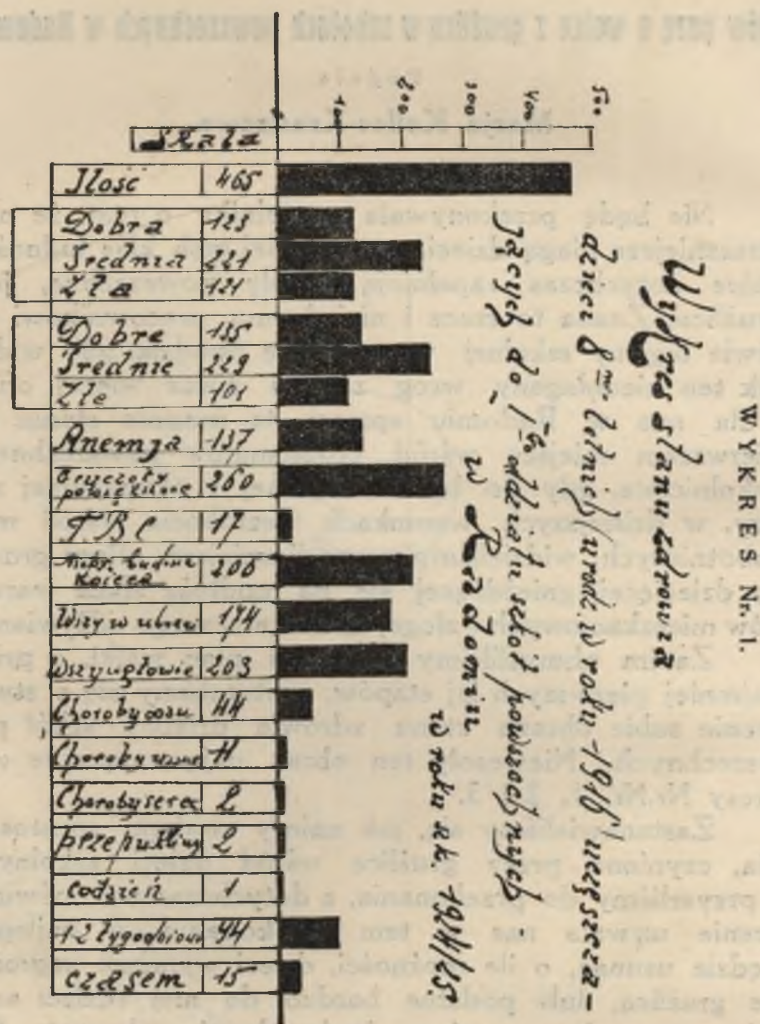 WYKRES Nr. 1.
Wykres stanu zdrowia
dzieci 8 letnich w roku 1916 uczęszcza-
jących do 1go oddziału szkół powszechnych
w Radomiu
w roku szk. 1924/25.
100 200 300 400 500
Skala
Ilość 465
Dobra 123
Średnia 221
Zła 121
Dobre 135
Średnie 229
Złe 101
Anemja 137
Gruczoły powiększone 260
TBC 17
206
Wszy w 174
Wszy w głowie 203
Choroby oczu 44
Choroby uszu 11
Choroby serca 2
przepukliny 2
codzień 1
1-2 tygodniowo 94
czasem 15